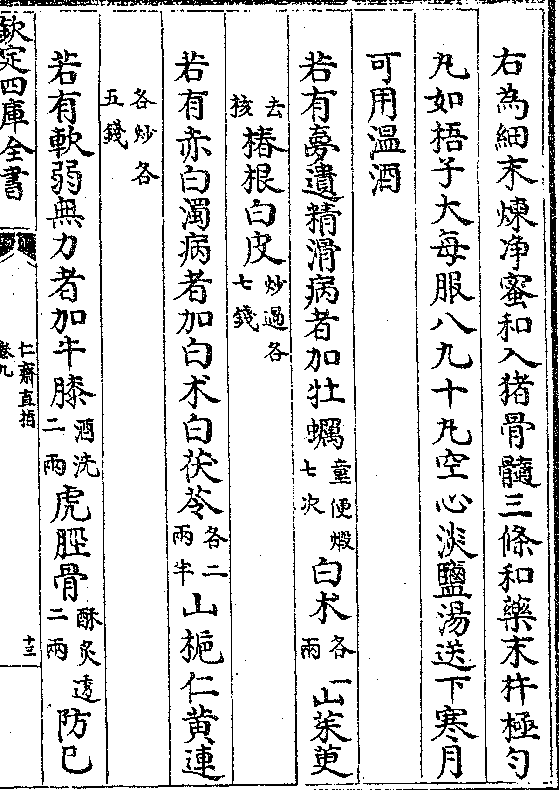 右為細末煉净蜜和入猪骨髓三條和藥末杵極勻
丸如梧子大每服八九十丸空心淡鹽湯送下寒月
可用温酒
若有夢遺精滑病者加牡蠣童便煆七次白朮各一兩山茱萸
去核椿根白皮炒過各七錢
若有赤白濁病者加白朮白茯苓各二兩半山梔仁黄連
各炒各五錢
若有軟弱無力者加牛膝酒洗二兩虎脛骨酥炙透二兩防已
欽定四庫全書
仁齋直指
卷九
十三